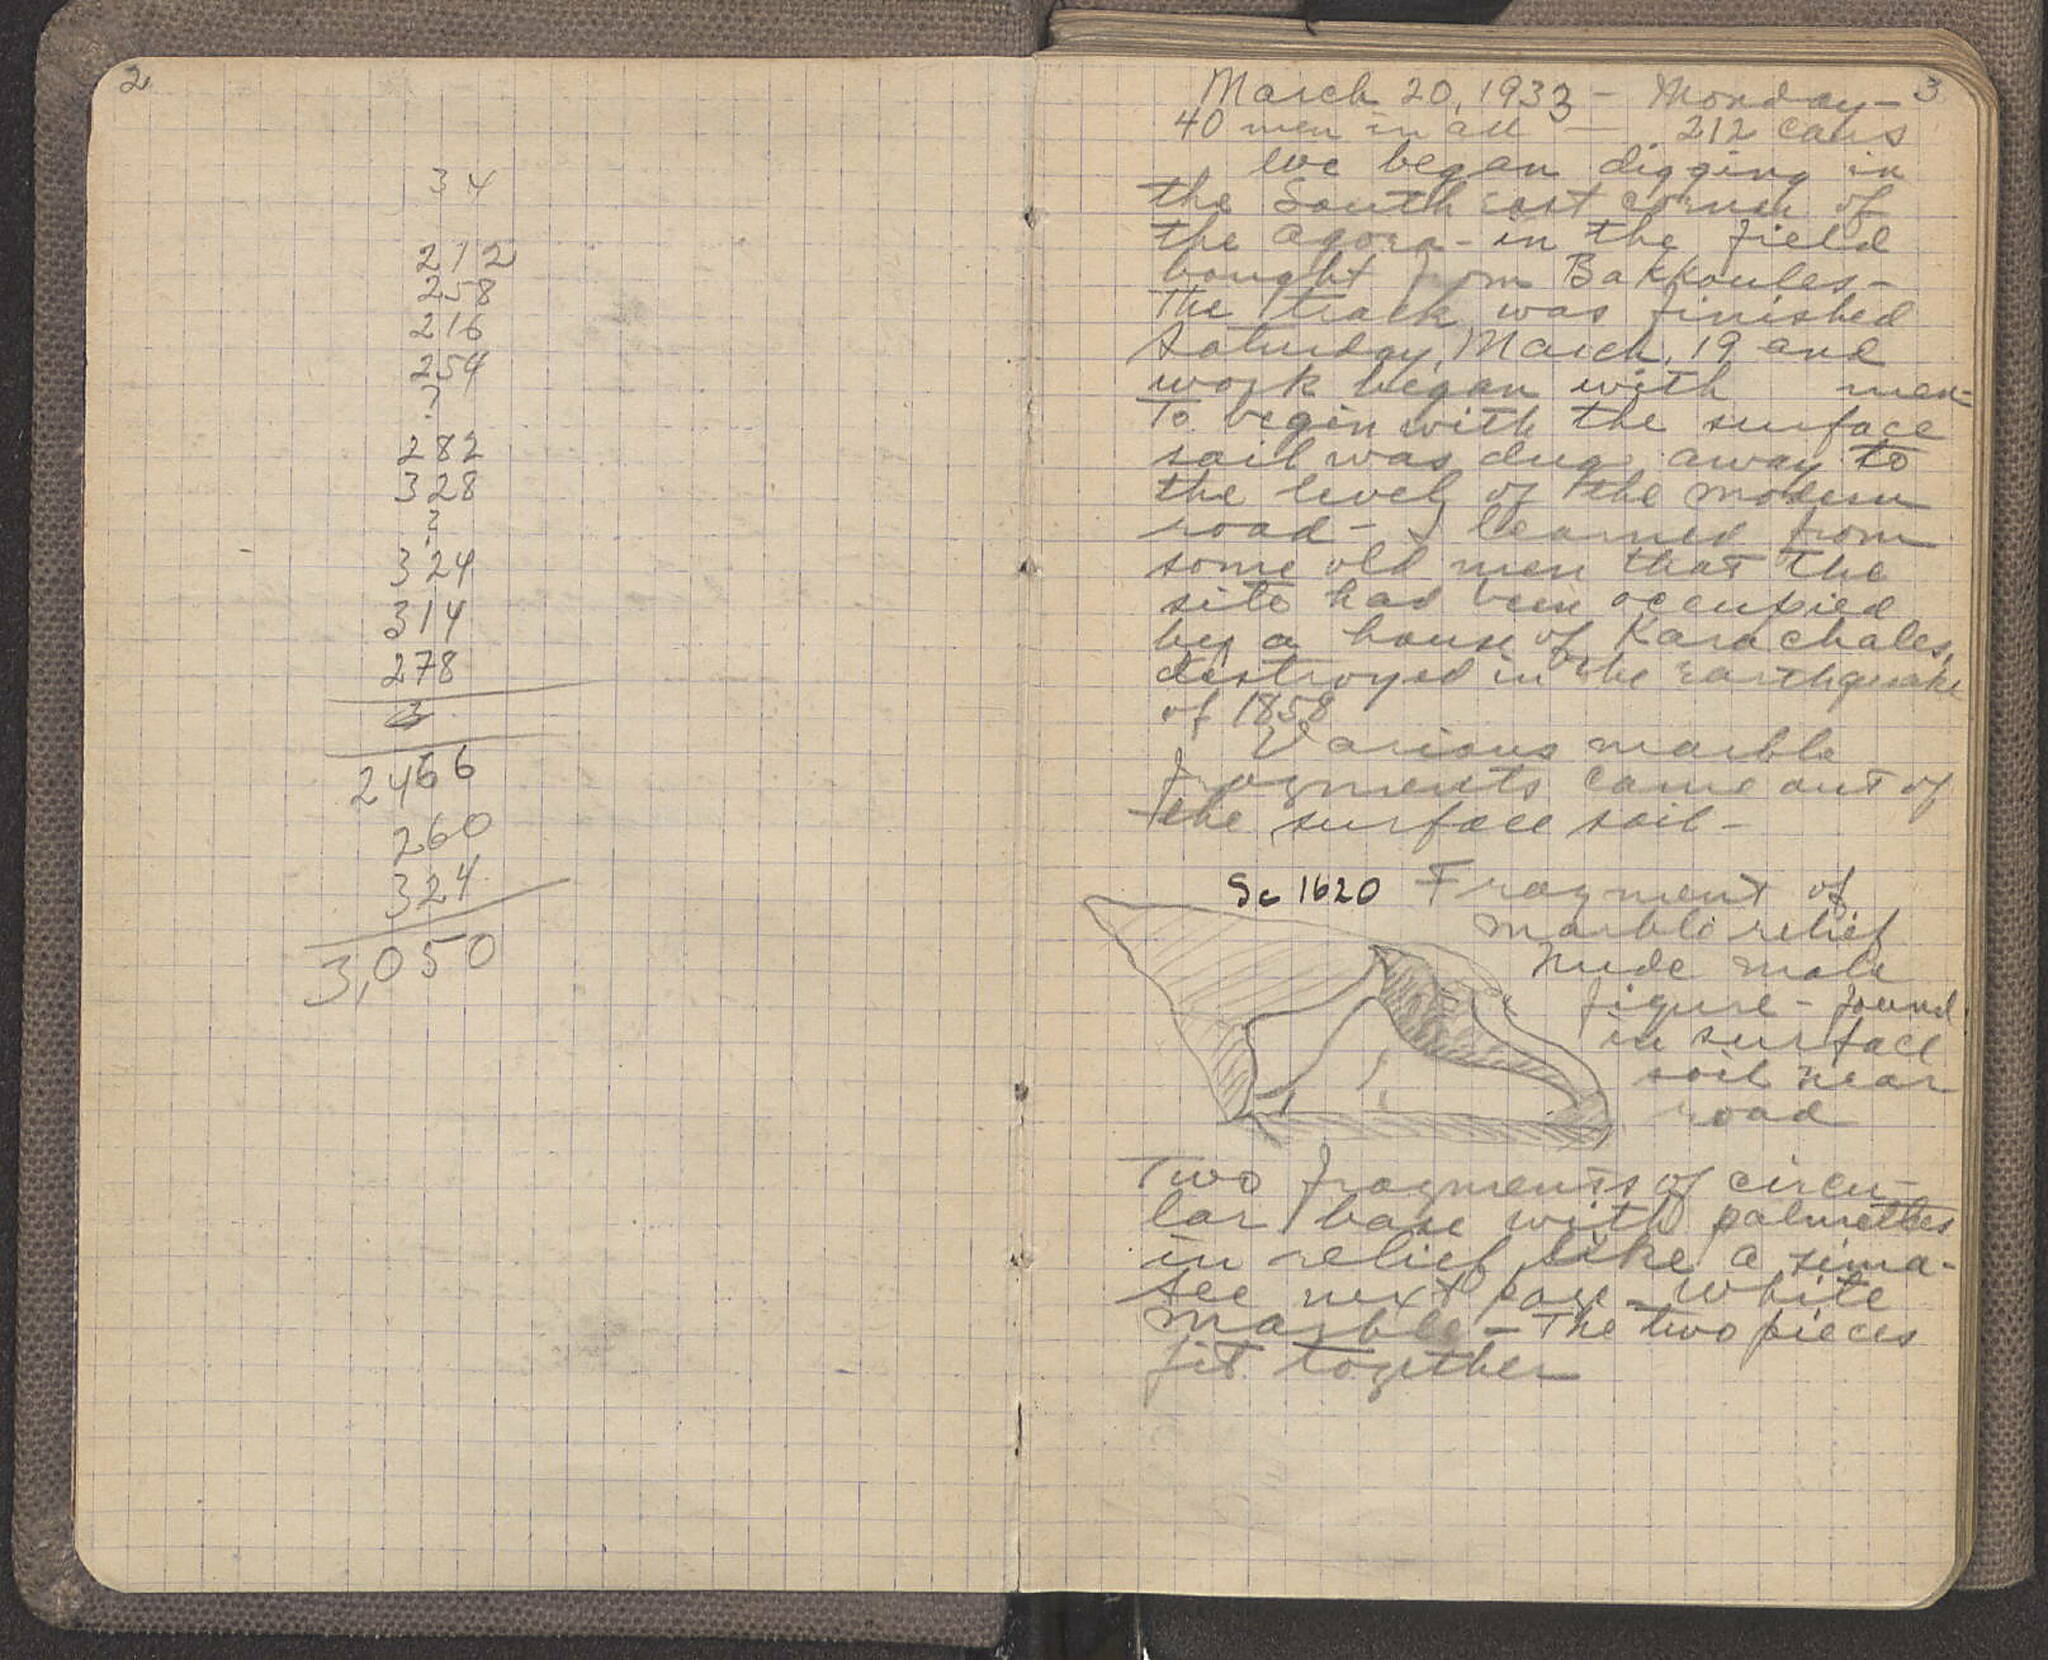 2
34
212
258
216
254
?
282
328
?
324
314
278
2466
260
324
3,050
March 20, 1933 - Monday - 3
40 men in all — 212 cars
We began digging in
the South east corner of
the agora - in the field
bought from Bakkoules -
The track was finished
Saturday, March, 19 and
work began with men -
To begin with the surface
soil was dug away to
the level of the modern
road - I learned from
some old men that the
site had been occupied
by a house of Karachales,
destroyed in the earthquake
of 1858
Various marble
fragments came out of
the surface soil -
Sc 1620 Fragment of
marble relief
Nude male
figure - found
in surface
soil near
road
Two fragments of circu-
lar base with palmettes
in relief like a sima -
see next page - White
marble - The two pieces
fit together